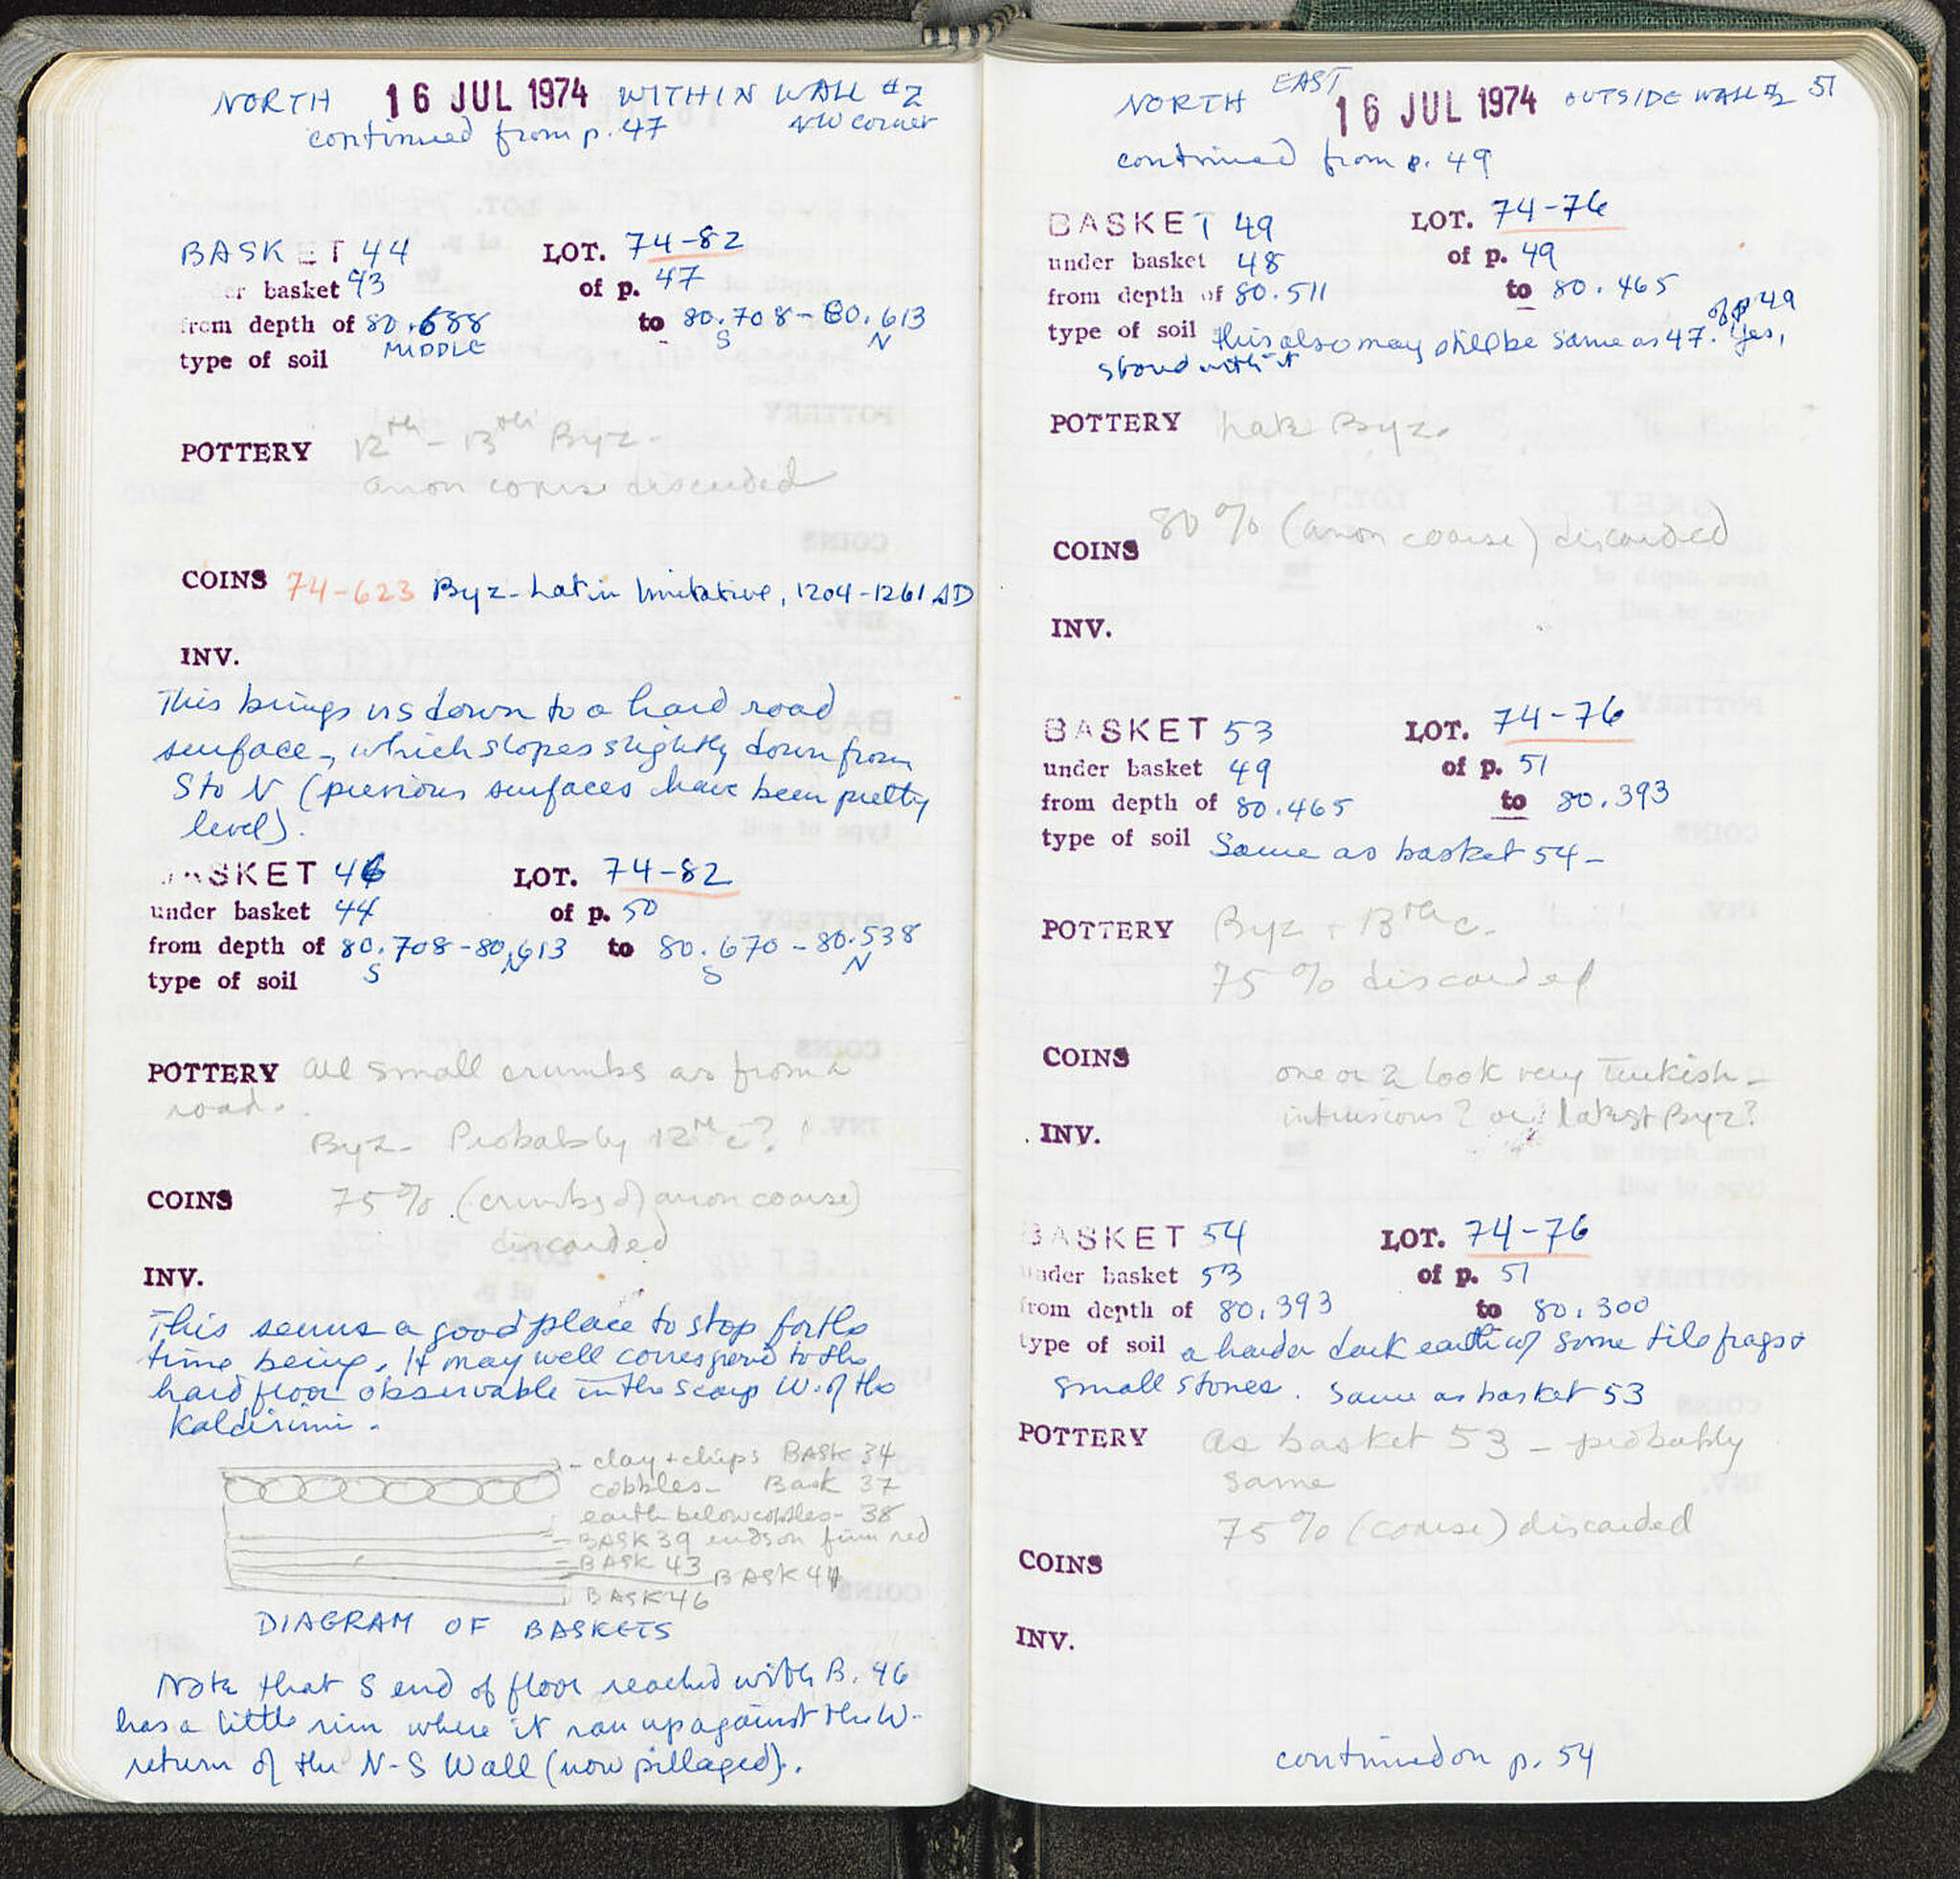 NORTH 16 JUL 1974 WITHIN WALL #2
continued from p. 47 NW corner
BASKET 44 LOT. 74-82
basket 43 of p. 47
from depth of 80.688 to 80.708 - 80.613
MIDDLE S N
type of soil
POTTERY 12th - 13th Byz.
anon coarse discarded
COINS 74-623 Byz-Latin Imitative, 1204-1261 AD
INV.
This brings us down to a hard road
surface, which slopes slightly down from
S to N (previous surfaces have been pretty
level).
BASKET 46 LOT. 74-82
under basket 44 of p. 50
from depth of 80.708-80.613 to 80.670 - 80.538
S N S N
type of soil
POTTERY all small crumbs as from a
road.
Byz - Probably 12th c?
COINS 75% (crumbs & anon coarse)
discarded
INV.
This seems a good place to stop for the
time being. It may well correspond to the
hard floor observable in the scarp W. of the
Kalderimi.
- clay + chips BASK 34
cobbles - Bask 37
earth below cobbles - 38
BASK 39 ends on firm red
BASK 43
BASK 44
BASK 46
DIAGRAM OF BASKETS
Note that S end of floor reached with B. 46
has a little rim where it ran up against the W-
return of the N-S Wall (now pillaged).
NORTH EAST 16 JUL 1974 OUTSIDE WALL 2 51
continued from p. 49
BASKET 49 LOT. 74-76
under basket 48 of p. 49
from depth of 80.511 to 80.465
type of soil this also may still be same as 47. of p 49 Yes,
stoud with it
POTTERY Late Byz.
80% (anon coarse) discarded
COINS
INV.
BASKET 53 LOT. 74-76
under basket 49 of p. 51
from depth of 80.465 to 80.393
type of soil Same as basket 54 -
POTTERY Byz + 13th c.
75% discarded
COINS
one or 2 look very Turkish -
intrusions? or latest Byz?
INV.
BASKET 54 LOT. 74-76
under basket 53 of p. 51
from depth of 80.393 to 80.300
type of soil a harder dark earth w/ some tile frags +
small stones. Same as basket 53
POTTERY As basket 53 - probably
same
75% (coarse) discarded
COINS
INV.
continued on p. 54